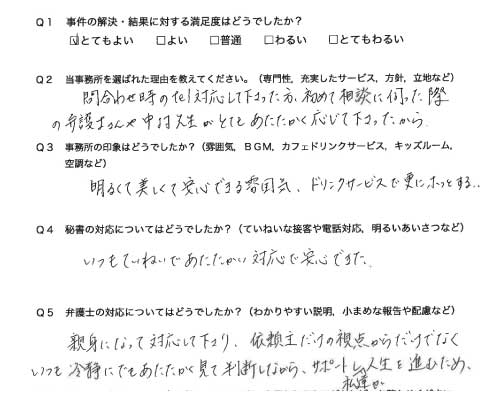 Q1 事件の解決・結果に対する満足度はどうでしたか？
☑とてもよい □よい □普通 □わるい □とてもわるい
Q2 当事務所を選ばれた理由を教えてください。（専門性，充実したサービス，方針，立地など）
問合わせ時のtel対応して下さった方、初めて相談に伺った際
の弁護士さんや中村先生がとてもあたたかく応じて下さったから.
Q3 事務所の印象はどうでしたか？（雰囲気，BGM，カフェドリンクサービス，キッズルーム，
空調など）
明るくて美しくて安心できる雰囲気、ドリンクサービスで更にホッとする..
Q4 秘書の対応についてはどうでしたか？（ていねいな接客や電話対応，明るいあいさつなど）
いつもていねいであたたかい対応で安心できた.
Q5 弁護士の対応についてはどうでしたか？（わかりやすい説明，小まめな報告や配慮など）
親身になって対応して下さり、依頼主だけの視点からだけでなく
いつも冷静にでもあたたかく見て判断しながら、サポートし人生を進むため、
私達が